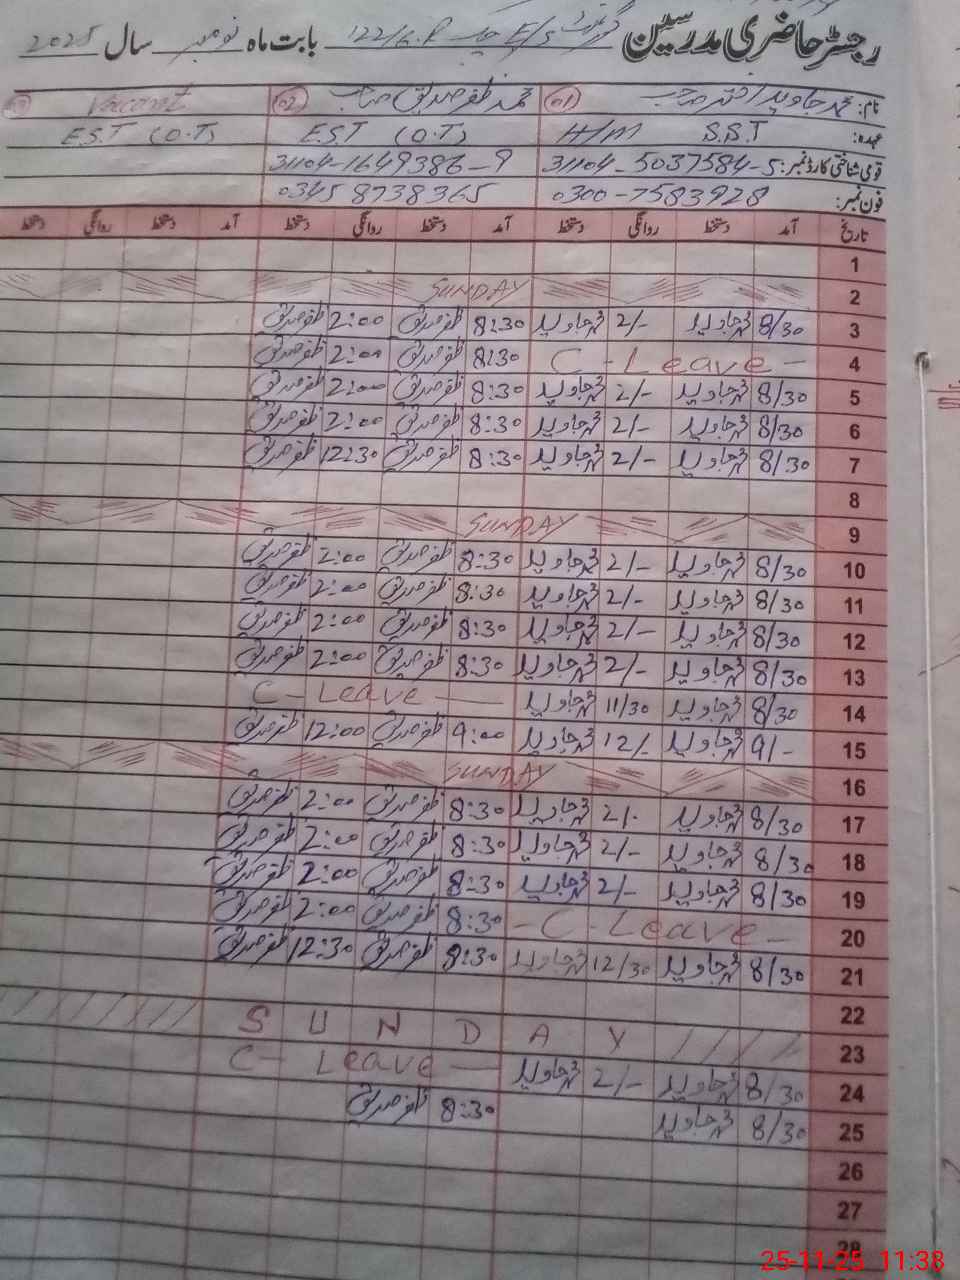 رجسٹر حاضری مدرسین گورنمنٹ E/S چک 122/6.R بابت ماہ نومبر سال 2025
نام: محمد جاوید اختر صاحب (01) محمد ظفر صدیق صاحب (02) Vacant (03)
عہدہ: S.S.T H/M E.S.T (O.T) E.S.T (O.T)
قومی شناختی کارڈ نمبر: 31104-5037584-5 31104-1649386-9
فون نمبر: 0300-7583928 0345 8738365
تاریخ آمد دستخط روانگی دستخط آمد دستخط روانگی دستخط آمد دستخط روانگی دستخط
1
2 SUNDAY
3 8/30 محمد جاوید 2/- محمد جاوید 8:30 ظفر صدیق 2:00 ظفر صدیق
4 C-Leave- 8:30 ظفر صدیق 2:00 ظفر صدیق
5 8/30 محمد جاوید 2/- محمد جاوید 8:30 ظفر صدیق 2:00 ظفر صدیق
6 8/30 محمد جاوید 2/- محمد جاوید 8:30 ظفر صدیق 2:00 ظفر صدیق
7 8/30 محمد جاوید 2/- محمد جاوید 8:30 ظفر صدیق 12:30 ظفر صدیق
8
9 SUNDAY
10 8/30 محمد جاوید 2/- محمد جاوید 8:30 ظفر صدیق 2:00 ظفر صدیق
11 8/30 محمد جاوید 2/- محمد جاوید 8:30 ظفر صدیق 2:00 ظفر صدیق
12 8/30 محمد جاوید 2/- محمد جاوید 8:30 ظفر صدیق 2:00 ظفر صدیق
13 8/30 محمد جاوید 2/- محمد جاوید 8:30 ظفر صدیق 2:00 ظفر صدیق
14 8/30 محمد جاوید 11/30 محمد جاوید C-Leave
15 9/- محمد جاوید 12/- محمد جاوید 9:00 ظفر صدیق 12:00 ظفر صدیق
16 SUNDAY
17 8/30 محمد جاوید 2/- محمد جاوید 8:30 ظفر صدیق 2:00 ظفر صدیق
18 8/30 محمد جاوید 2/- محمد جاوید 8:30 ظفر صدیق 2:00 ظفر صدیق
19 8/30 محمد جاوید 2/- محمد جاوید 8:30 ظفر صدیق 2:00 ظفر صدیق
20 -C-Leave- 8:30 ظفر صدیق 2:00 ظفر صدیق
21 8/30 محمد جاوید 12/30 محمد جاوید 8:30 ظفر صدیق 12:30 ظفر صدیق
22
23 SUNDAY
24 8/30 محمد جاوید 2/- محمد جاوید C-Leave
25 8/30 محمد جاوید 8:30 ظفر صدیق
26
27
28
25-11-25 11:38